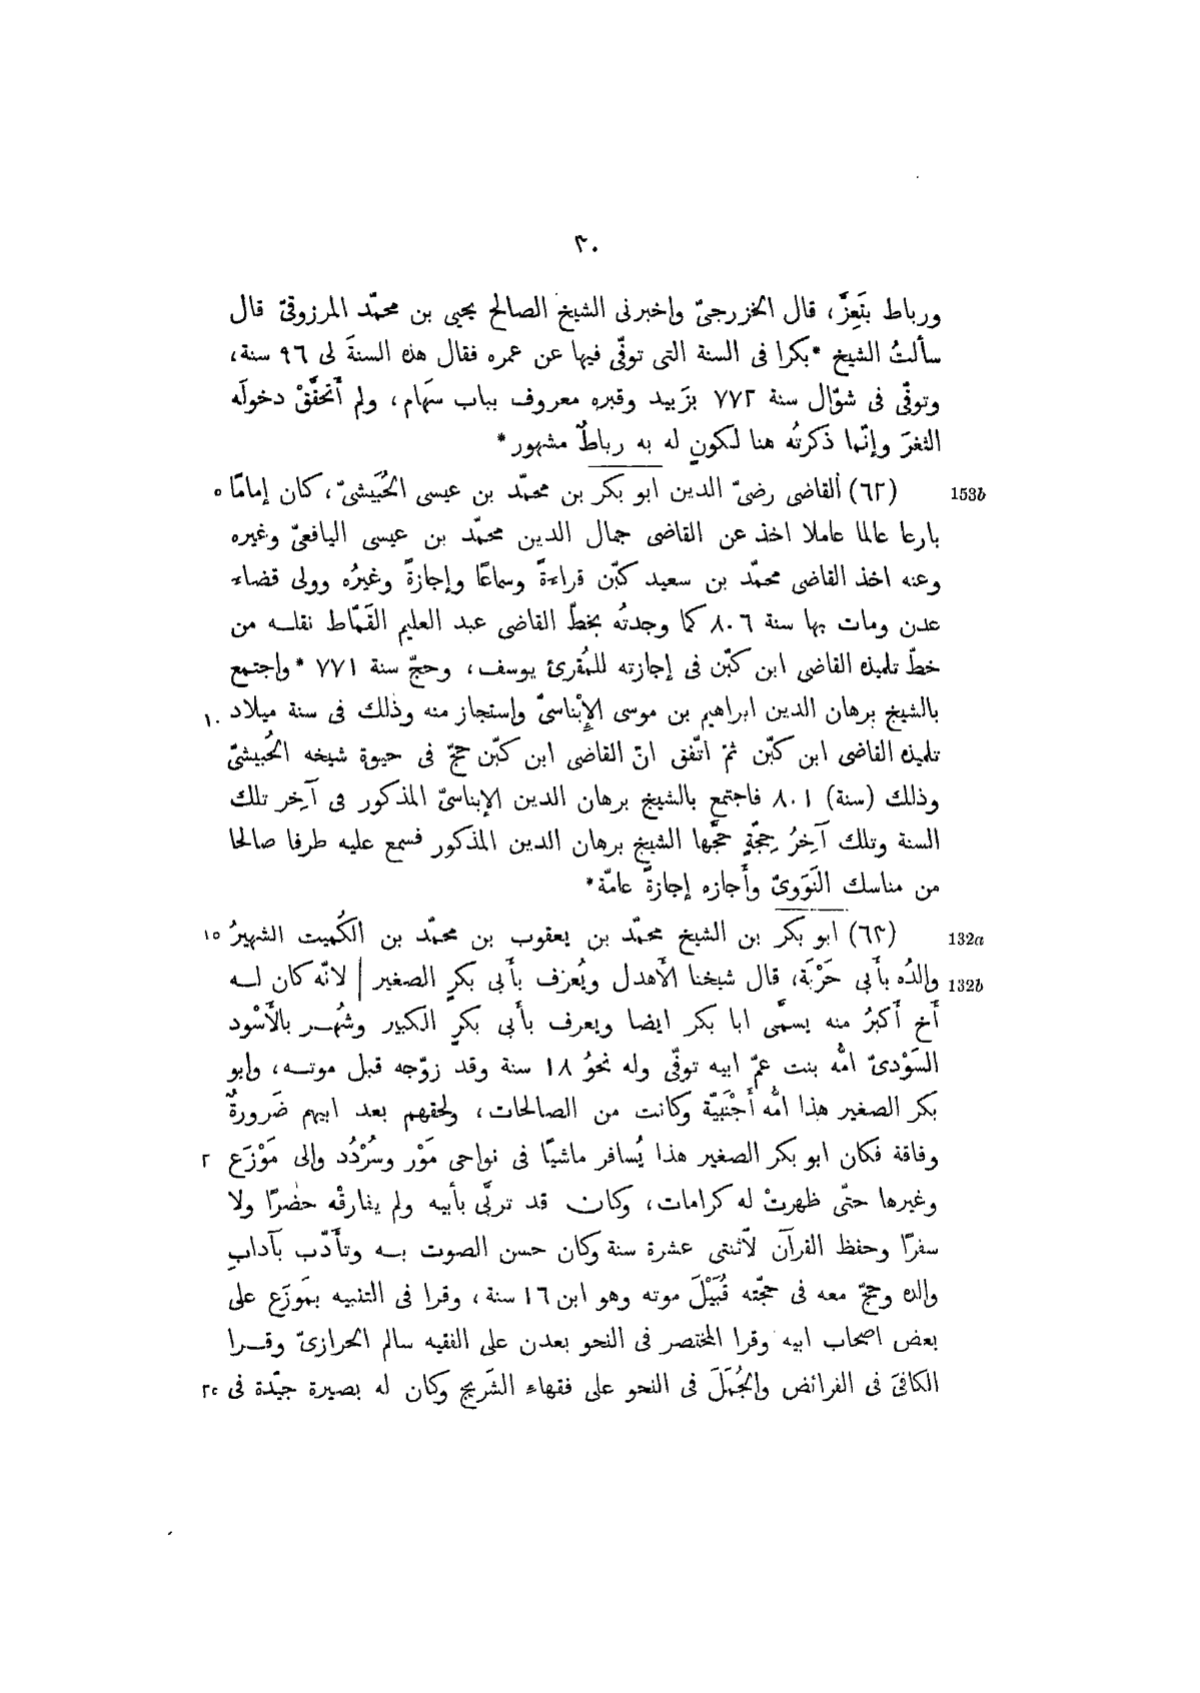 ٣٠
ورباط بتَعِزَّ، قال الخزرجىّ وإخبرنى الشيخ الصالح يحيى بن محمّد المرزوقىّ قال
سألتُ الشيخ *بكرا فى السنة التى توفّى فيها عن عمره فقال هذه السنةَ لى ٩٦ سنة،
وتوفّى فى شوّال سنة ٧٧٢ بزَبيد وقبره معروف بباب سَهام، ولم أتحقَّقْ دخولَه
الثغرَ وإنّما ذكرتُه هنا لكونِ له به رباطٌ مشهور*
153b (٦٢) ألقاضى رضىّ الدين ابو بكر بن محمّد بن عيسى الحُبَيشىّ، كان إمامًا ٥
بارعا عالما عاملا اخذ عن القاضى جمال الدين محمّد بن عيسى اليافعىّ وغيره
وعنه اخذ القاضى محمّد بن سعيد كبّن قراءةً وسماعًا وإجازةً وغيرُه وولى قضاء
عدن ومات بها سنة ٨٠٦ كما وجدتُه بخطّ القاضى عبد العليم القَمّاط نقله من
خطّ تلميذه القاضى ابن كبّن فى إجازته للمُقرئ يوسف، وحجّ سنة ٧٧١ *وإجتمع
بالشيخ برهان الدين ابراهيم بن موسى الإِبْناسىّ وإستجاز منه وذلك فى سنة ميلاد ١٠
تلميذه القاضى ابن كبّن ثمّ اتّفق انّ القاضى ابن كبّن حجّ فى حيوة شيخه الحُبيشىّ
وذلك (سنة) ٨٠١ فاجتمع بالشيخ برهان الدين الإبناسىّ المذكور فى آخِر تلك
السنة وتلك آخِرُ حِجّةٍ حجّها الشيخ برهان الدين المذكور فسمع عليه طرفا صالحا
من مناسك النَوَوىّ وأجازه إجازةً عامّة*
132a (٦٣) ابو بكر بن الشيخ محمّد بن يعقوب بن محمّد بن الكُميت الشهيرُ ١٥
132b والدُه بأَبى حَرْبَة، قال شيخنا الأهدل ويُعرَف بأَبى بكرٍ الصغير | لانّه كان له
أخ أَكبرُ منه يسمَّى ابا بكر ايضا ويعرف بأَبى بكرٍ الكبير وشُهر بالأَسْود
السَوْدىّ امُّه بنت عمّ ابيه توفّى وله نحوُ ١٨ سنة وقد زوّجه قبل موته، وابو
بكر الصغير هذا امُّه أَجْنَبيّة وكانت من الصالحات، ولحقهم بعد ابيهم ضَرورةٌ
وفاقة فكان ابو بكر الصغير هذا يُسافر ماشيًا فى نواحى مَوْر وسُرْدُد وإلى مَوْزَع ٢
وغيرها حتّى ظهرتْ له كرامات، وكان قد تربَّى بأبيه ولم يفارقْه حضرًا ولا
سفرًا وحفظ القرآن لآثنتى عشرة سنة وكان حسن الصوت به وتأَدّب بآدابِ
والده وحجّ معه فى حجّته قُبَيْلَ موته وهو ابن ١٦ سنة، وقرا فى التنبيه بمَوزَع على
بعض اصحاب ابيه وقرا المختصر فى النحو بعدن على الفقيه سالم الحرازىّ وقرا
الكافىَ فى الفرائض والجُمَلَ فى النحو على فقهاء الشَريج وكان له بصيرة جيّدة فى ٢٥